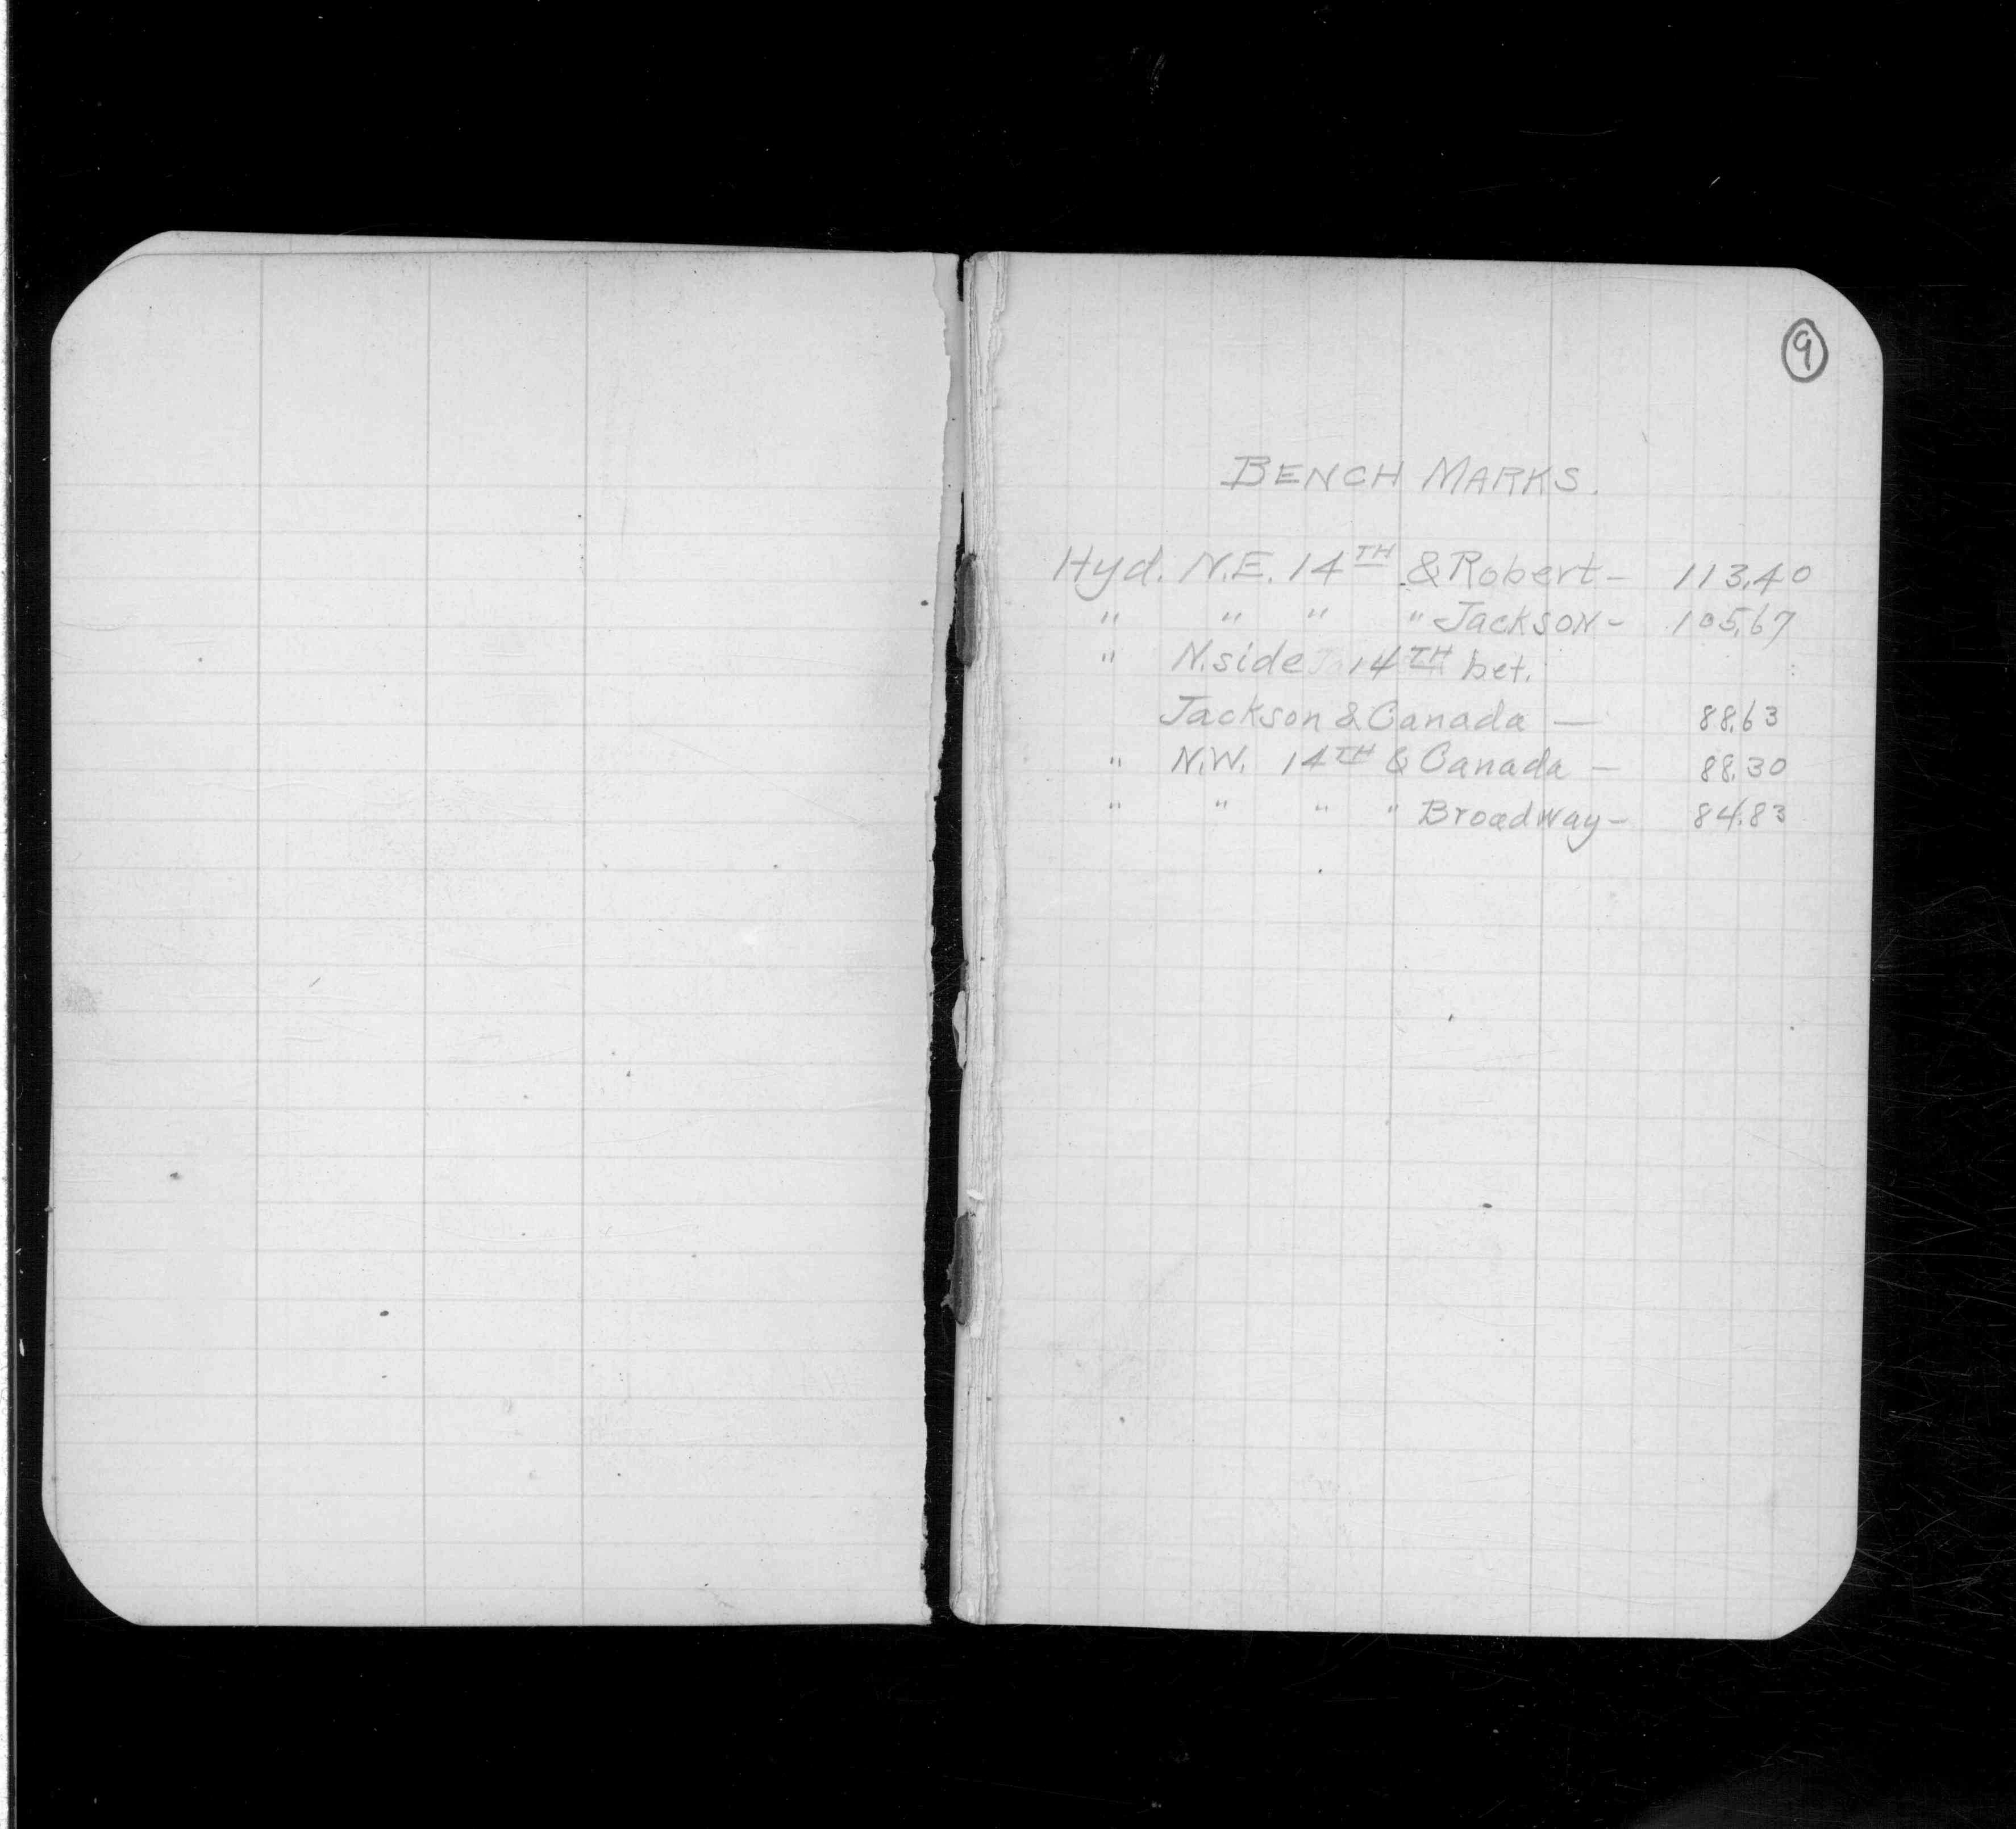 9
BENCH MARKS.
Hyd. N.E. 14TH & Robert - 113.40
" " " " Jackson - 105.67
" N.side 14TH bet.
Jackson & Canada — 88.63
" N.W. 14TH & Canada - 88.30
" " " " Broadway - 84.83